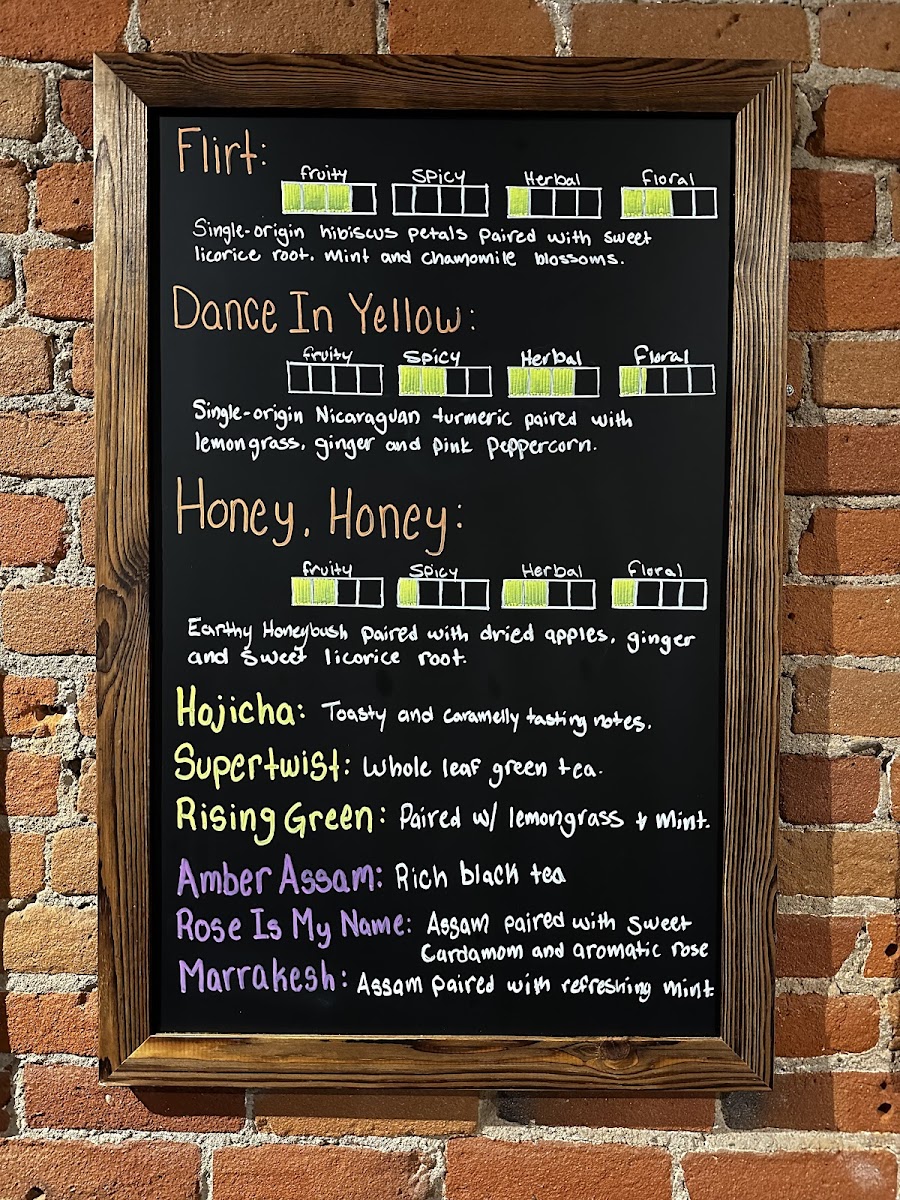 Flirt:
fruity Spicy Herbal Floral
Single-origin hibiscus petals paired with sweet
licorice root, mint and chamomile blossoms.
Dance In Yellow:
fruity Spicy Herbal Floral
Single-origin Nicaraguan turmeric paired with
lemongrass, ginger and pink peppercorn.
Honey, Honey:
fruity Spicy Herbal Floral
Earthy Honeybush paired with dried apples, ginger
and sweet licorice root.
Hojicha: Toasty and caramelly tasting notes.
Supertwist: Whole leaf green tea.
Rising Green: Paired w/ lemongrass + mint.
Amber Assam: Rich black tea
Rose Is My Name: Assam paired with sweet
Cardamom and aromatic rose
Marrakesh: Assam paired with refreshing mint.